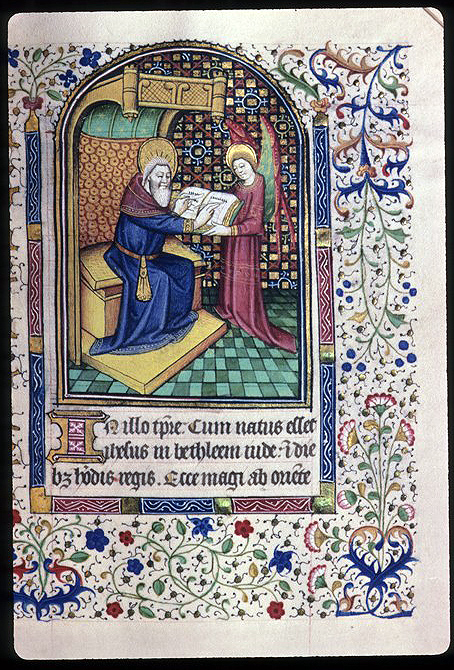 In illo tpre. Cum natus esset
ihesus in bethleem iude: i die
bz hodis regis. Ecce magi ab oriete